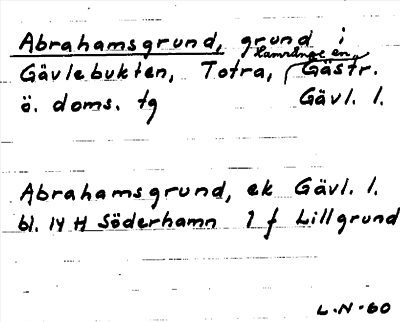 Abrahamsgrund, grund i
Hamrånge en.
Gävlebukten, Totra, Gästr.
ö. doms. tg Gävl. l.
Abrahamsgrund, ek Gävl. l.
bl. 14 H Söderhamn 1 f Lillgrund
L.N-60